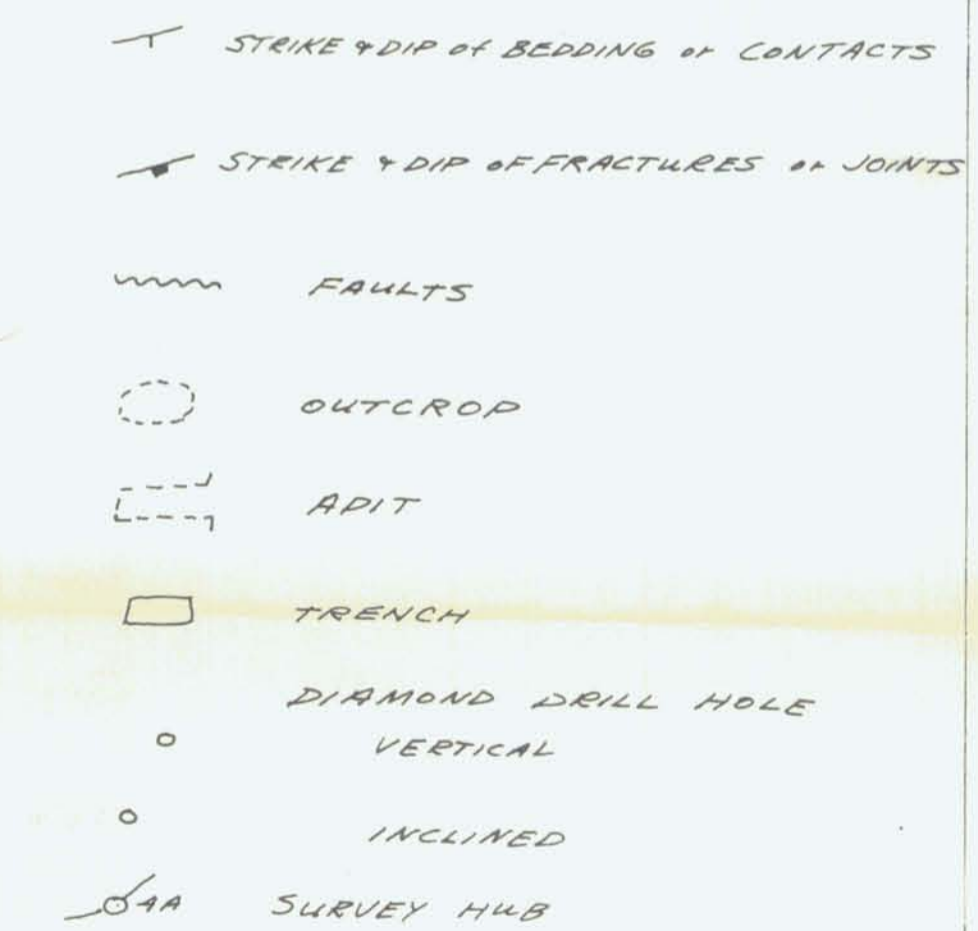 STRIKE & DIP of BEDDING or CONTACTS
STRIKE & DIP OF FRACTURES or JOINTS
FAULTS
OUTCROP
ADIT
TRENCH
DIAMOND DRILL HOLE
VERTICAL
INCLINED
AA SURVEY HUB